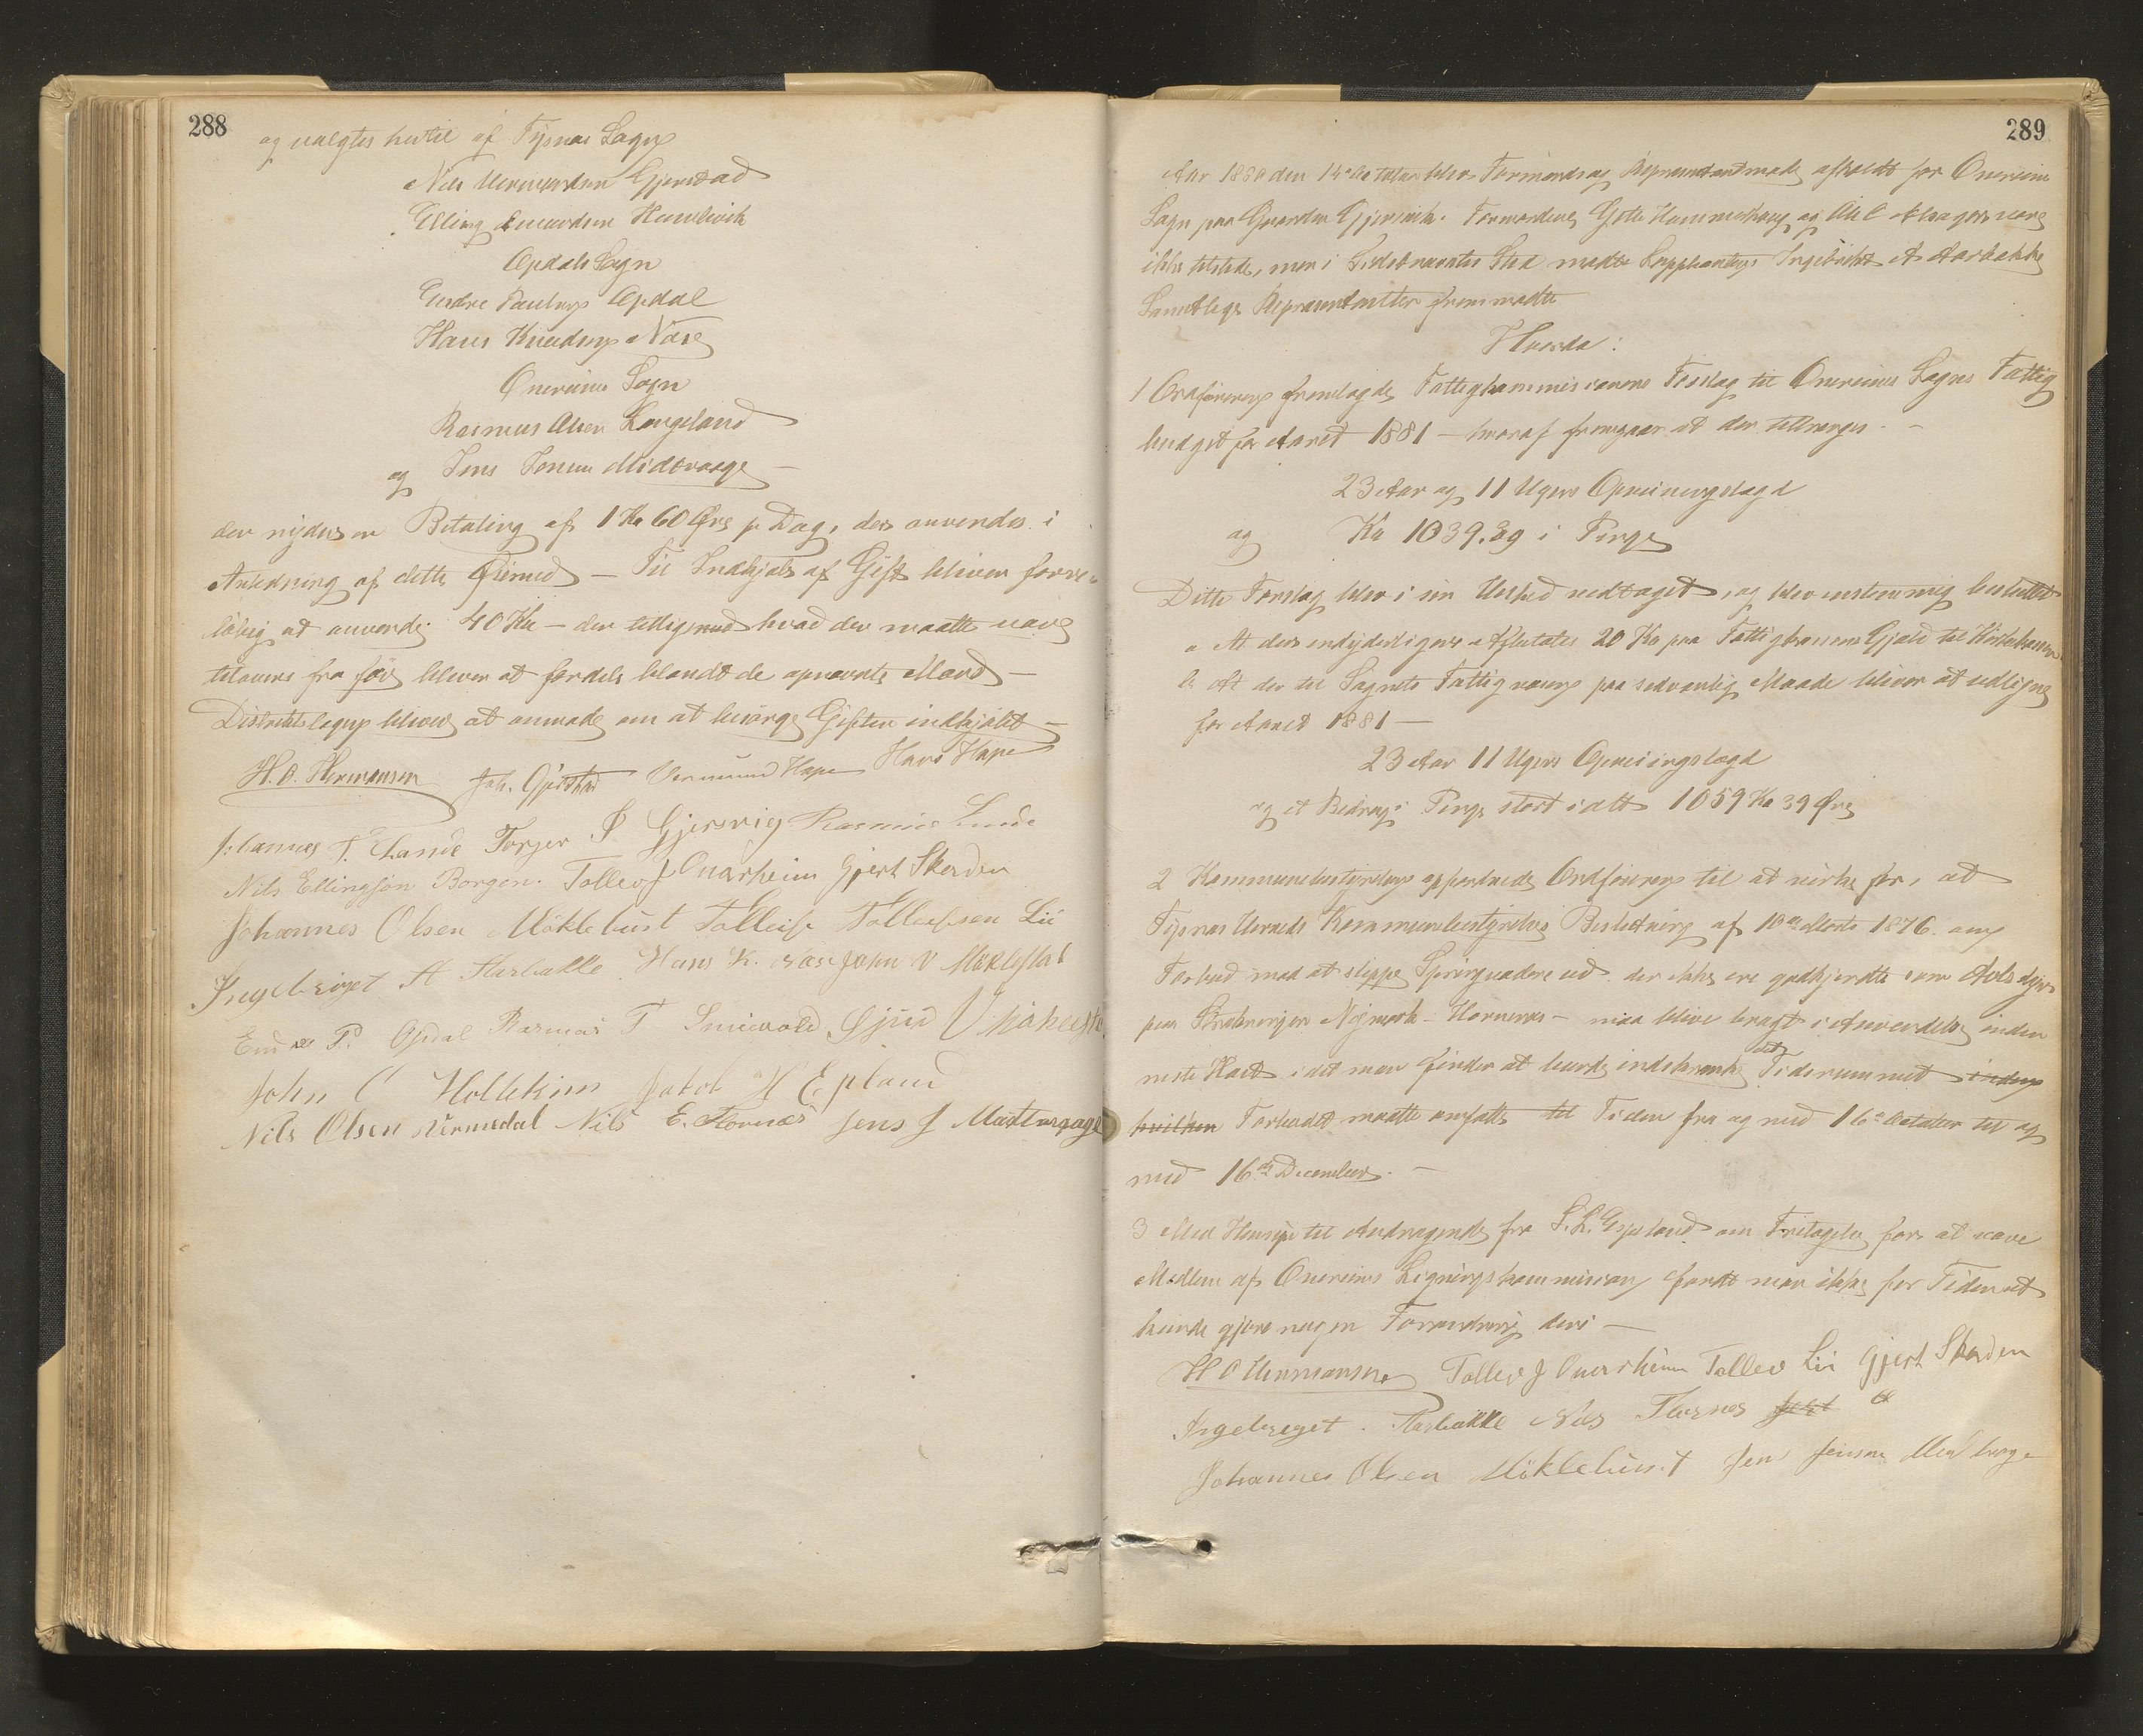 288
og valgtes hertil af Tysnæs Sogn
Nils Vermundsen Gjerstad
Elling Amundsen Humlevik
Opdals Sogn
Endre Paulsen Opdal
Hans Knudsen Näse
Onereims Sogn
Rasmus Olsen Langeland
og Jens Jensen Midtvaage
der nydes en Betaling af 1 Kr 60 Øre pr Dag, der anvendes i
Anledning af dette Øiemed – Til Indkjøb af Gift bliver forre-
løbig at anvende 40 Kr – der tilligemed hvad der maatte være
tilovers fra før bliver at fordele blandt de opnævnte Mænd –
Distriktslægen bliver at anmode om at besørge Giften indkjøbt –
H. O. Hermansen Joh. Gjerstad Vermund Hope Hans Hope
Johannes T. Lande Torger S Gjersvig Rasmus Lunde
Nils Ellingsøn Borgen. Tollev J Onarheim Gjert Skorden
Johannes Olsen Møklebust Tolleif Tolleifsen Lii
Ingebrigt A Aarbakke Hans K. Näse John V Møklestad
Endre P. Opdal Rasmus T Smievold Gjiid V
John C Hollekim Jakob H Epland
Nils Olsen Nermedal Nils E. Flornes Jens J Midtvaage
289
Aar 1880 den 14de Oktober blev Formands og Repræsentantmøde afholdt for Onereim
Sogn paa Gaarden Gjersvik. Formændene Gitle Hammerhaug og Ole C Aksager vare
ikke tilstede, men i Sidstnævntes Sted mødte Suppleanten Ingebrikt A Aarbakke
Samtlige Repræsentanter fremmødte
Hvorda:
1 Ordføreren fremlagde Fattigkommissionens Forslag til Onereims Sogns Fattig
budget for Aaret 1881 – hvoraf fremgaar at der tiltrænges –
23 Aar og 11 Ugers Opreisningslægd
og Kr 1039.39 i Penge
Dette Forslag blev i sin Helhed vedtaget, og blev enstemmig besluttet
a At der endvidere afsluttes 20 Kr paa Fattigkassens Gjæld til Kirkekassen
b At der til Sognets Fattigvæsen paa sedvanlig Maade bliver at udligne
for Aaret 1881 –
23 Aar 11 Ugers Opreisningslægd
og et Bidrag i Penge stort i alt 1059 Kr 39 Øre
2 Kommunebestyrelsen opfordrede Ordføreren til at virke for, at
Tysnæs Herreds Kommunebestyrelses Beslutning af 10de Marts 1876 om
Forbud mod at slippe Springvædere ud der ikke ere godkjendte som Avlsdyr
paa Strækningen Nymark – Hornenes – maa blive bragt i Anvendelse inden
neste Høst idet man finder at burde indskrænke det Tidsrummet inden
hvilken Forbudet maatte omfatte til Tiden fra og med 16de Oktober til og
med 16de December. –
3 Med Hensyn til Andragende fra S. L. Espeland om Fritagelse for at være
Medlem af Onereims Ligningskommission fandt man ikke for Tiden at
kunde gjøre nogen Forandring deri –
H O Hermansen Tollev J Onerheim Tollev Lii Gjert Skorden
Ingebreget Aarbakke Nils Flornes
Johannes Olsen Møklebust Jens Jensen Midtvage